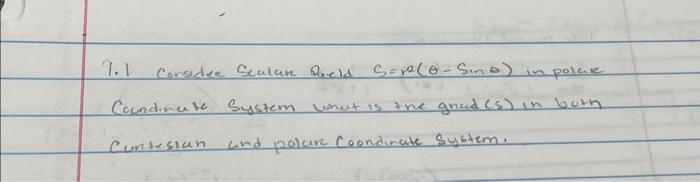 9.1 Consider Scalar field S=r²(θ-Sinθ) in polar
Coordinate System what is the grad(s) in both
Cartesian and polar Coordinate System.